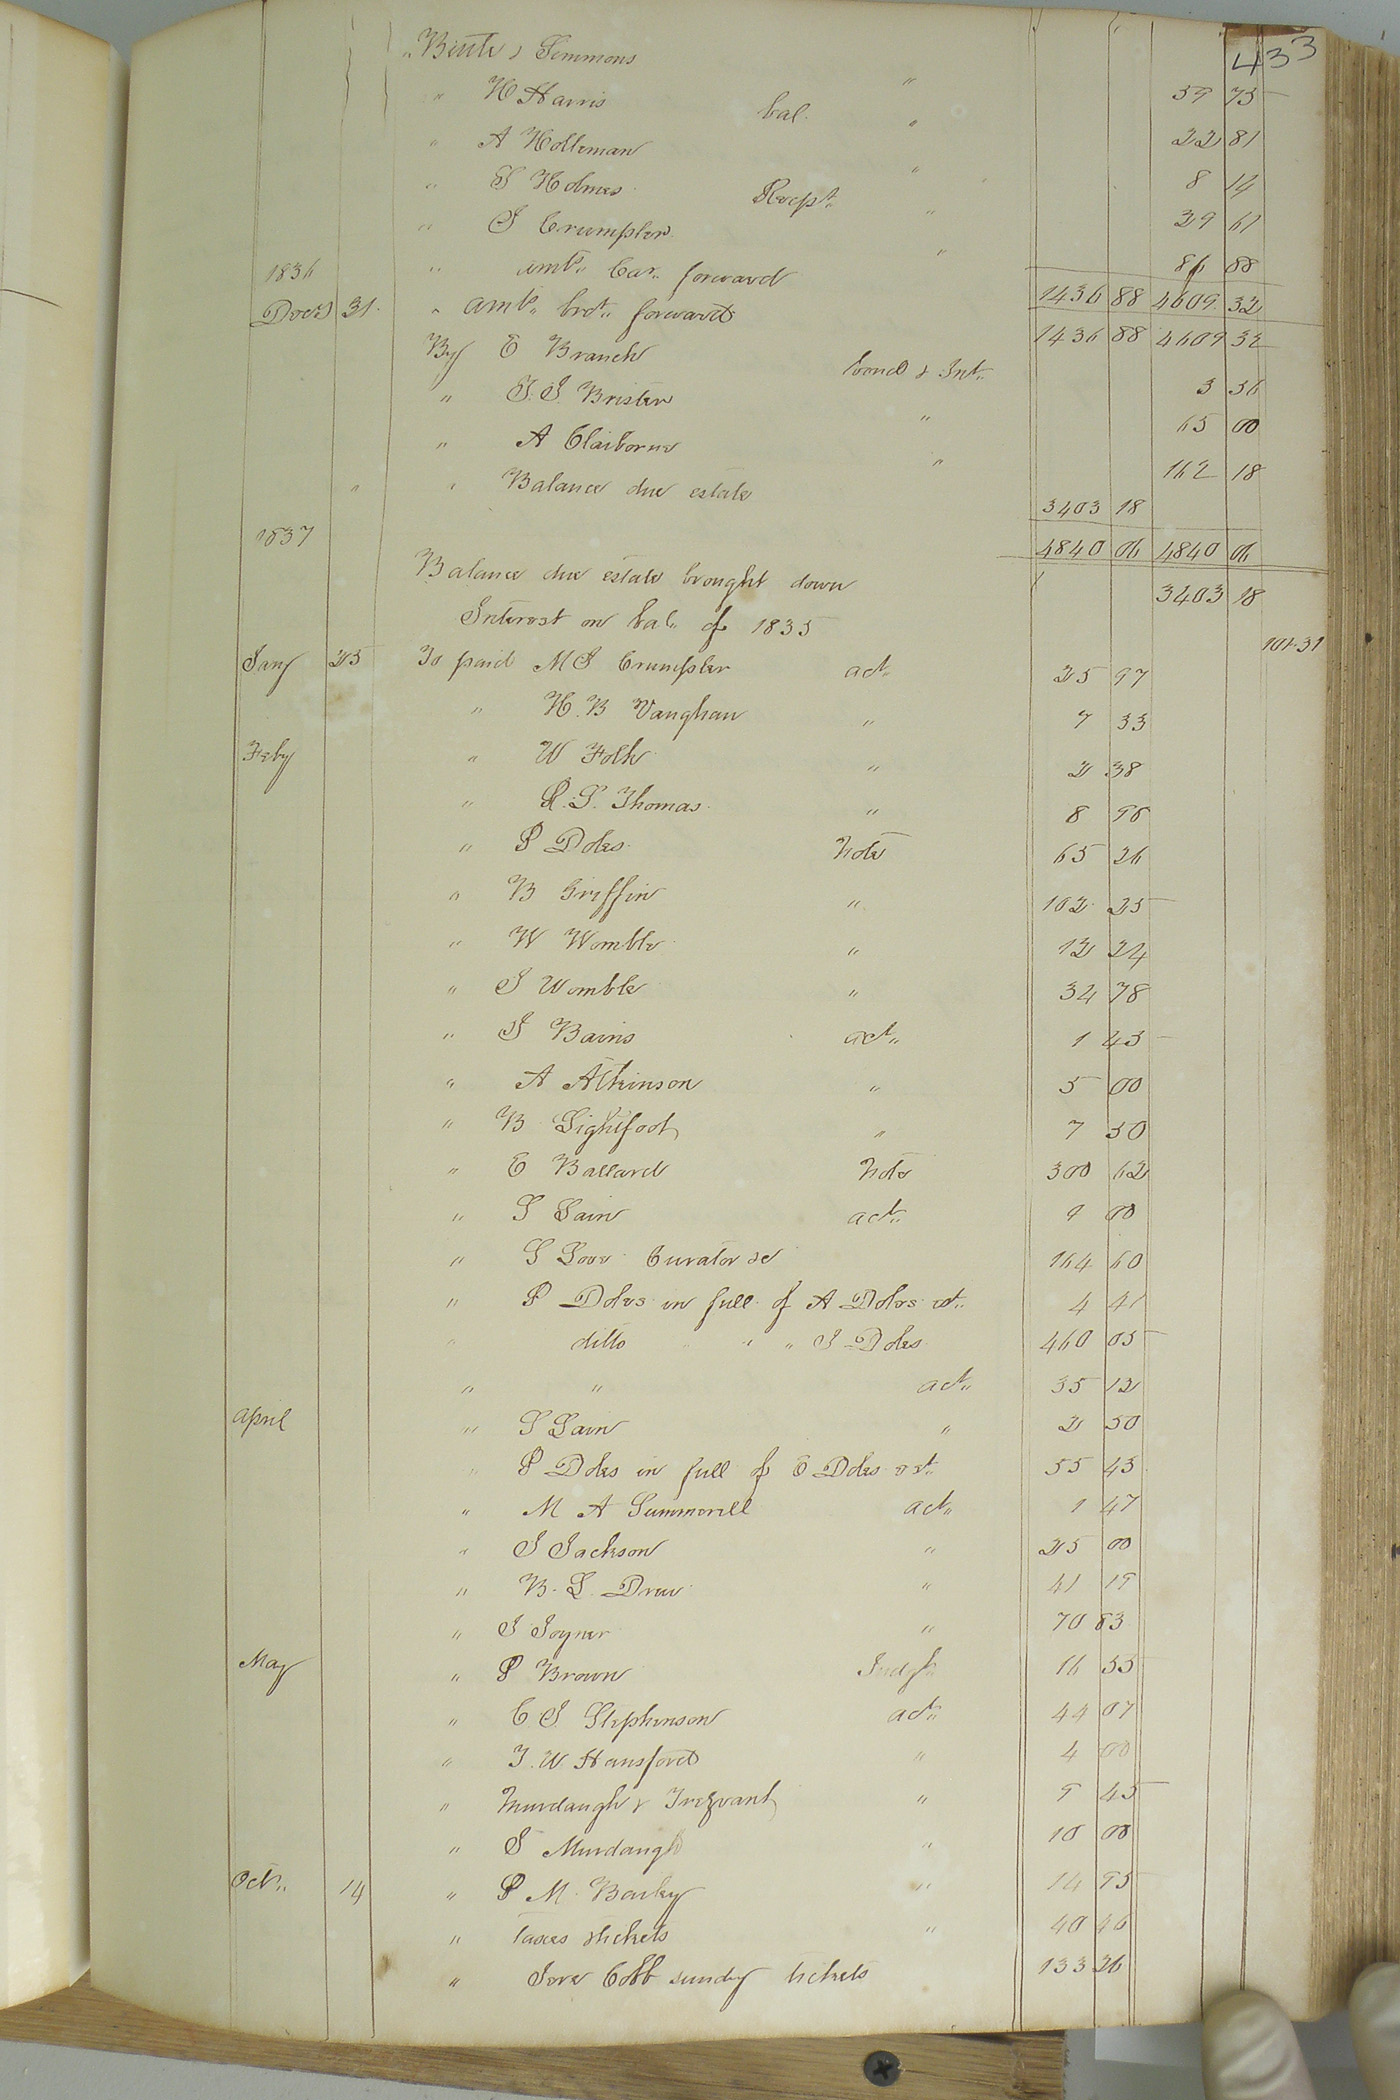 433
" Simmons " 59 75
" W Harris bal. " 22 81
" A Holleman " 8 14
" S Holmes Recpt. " 29 61
" J Crumpler " 86 88
" amt. Car. forward 1436 88 4609 32
1836
Decr 31. " amt. brot. forward 1436 88 4609 32
By E Branch bond & Int. 3 56
" J. J. Brister " 65 00
" A Claiborne " 162 18
" " Balance due estate 3403 18
4840 06 4840 06
1837
Balance due estate brought down 3403 18
Interest on bal. of 1835 101.31
Jany 25 To paid M J Crumpler act. 25 97
" H. B Vaughan " 7 33
Feby " W Folk " 2 38
" R. S. Thomas " 8 96
" P Doles Note 65 26
" B Griffin " 102 25
" W Womble " 12 24
" J Womble " 34 78
" J Bains act. 1 45
" A Atkinson " 5 00
" B Lightfoot " 7 50
" E Ballard Note 300 62
" S Lain act. 9 00
" S Love Curator &c 164 60
" P Doles in full of A Doles est. 4 41
" ditto " " J Doles 460 05
" " act. 35 12
April " S Lain " 2 50
" P Doles in full of E Doles est. 55 45
" M A Summerell act. 1 47
" J Jackson " 25 00
" B. L. Drew " 41 19
" J Joyner " 70 83
May " P Brown Judgt. 16 55
" C J. Stephenson act. 44 07
" J. W. Hansford " 4 00
" Murdaugh & Trezvant " 9 45
" S Murdaugh " 10 00
Oct. 14 " P M. Barley " 14 95
" taxes tickets " 40 46
" Jere Cobb sundry tickets 133 26